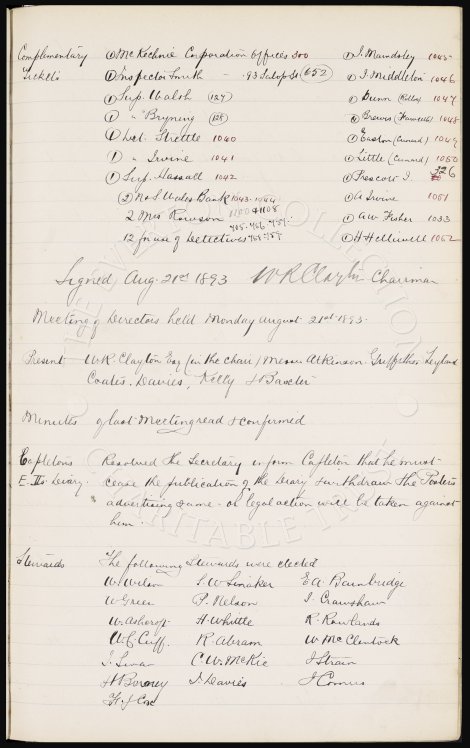 Complimentary ① McKechnie Corporation Offices 300 ① J. Mawdsley 1045
Tickets ① Inspector Smith - 93 Salop St (652) ① J. Middleton 1046
① Surp. Walsh (127) ① Dunn 1047
① " Bryning (128) 1048
① Det. Strettle 1040 ① Easton (Cunard) 1049
① " Irvine 1041 ① Little (Cunard) 1050
① Surp. Hassall 1042 ① Prescott J. 326
(2) No & S Wales Bank 1043.1044 ① A Irvine 1051
2 Mrs Rowson 1100 & 1108 ① A W Fisher 1033
12 for use of Detectives ① H Helliwell 1052
Signed Aug. 21st 1893 W R Clayton Chairman
Meeting of Directors held Monday august 21st 1893.
Present W.R. Clayton Esq (in the chair) Messrs Atkinson. Griffiths. Leyland
Coates. Davies, Kelly & Baxter
Minutes of last Meeting read & confirmed
Capletons Resolved the Secretary inform Capleton that he must
E. Ts Diary. cease the publication of the Diary & withdraw the Posters
advertising same - or legal action will be taken against
him.
Stewards The following Stewards were elected
W. Wilson S. W Smaker E A. Bainbridge
W Green P. Nelson J. Crawshaw
W. Ashcroft H. Whittle R. Rowlands
W. C. Cuff. R. Abram W. McClintock
C. W. McKie J Strain
J. Davies
H. J Cox